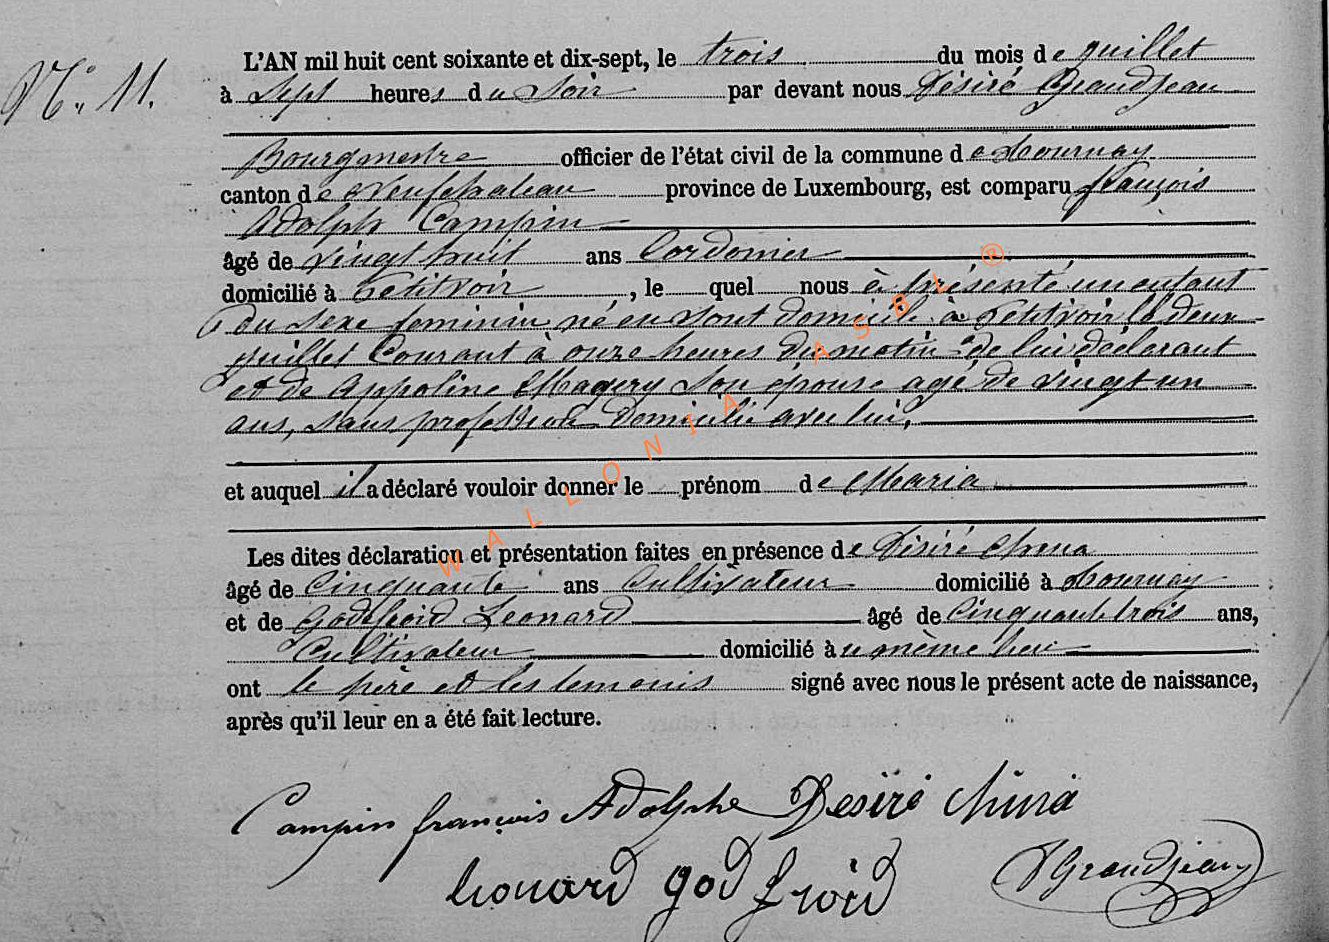 N° 11.
L'AN mil huit cent soixante et dix-sept, le trois du mois de juillet
à Sept heures du Soir par devant nous Désiré Grandjean
Bourgmestre officier de l'état civil de la commune de Tournay
canton de Neufchateau province de Luxembourg, est comparu françois
Adolph Campin
âgé de vingt huit ans Cordonier
domicilié à Petitvoir, le quel nous à présenté un enfant
du sexe feminin né en sont domicile à Petitvoir le deux
juillet Courant à onze heures du matin de lui déclarant
et de Appoline Magery Son épouse agé de vingt un
ans, sans profession domicilié avec lui,
et auquel il a déclaré vouloir donner le prénom de Maria
Les dites déclaration et présentation faites en présence de Désiré China
âgé de Cinquante ans Cultivateur domicilié à Tournay
et de Godfroid Leonard âgé de Cinquante trois ans,
Cultivateur domicilié à même lieu
ont le père et les temouis signé avec nous le présent acte de naissance,
après qu'il leur en a été fait lecture.
Campin françois Adolphe Desiré China
Leonard godfroid DGrandjean
WALLONIA ASBL ®